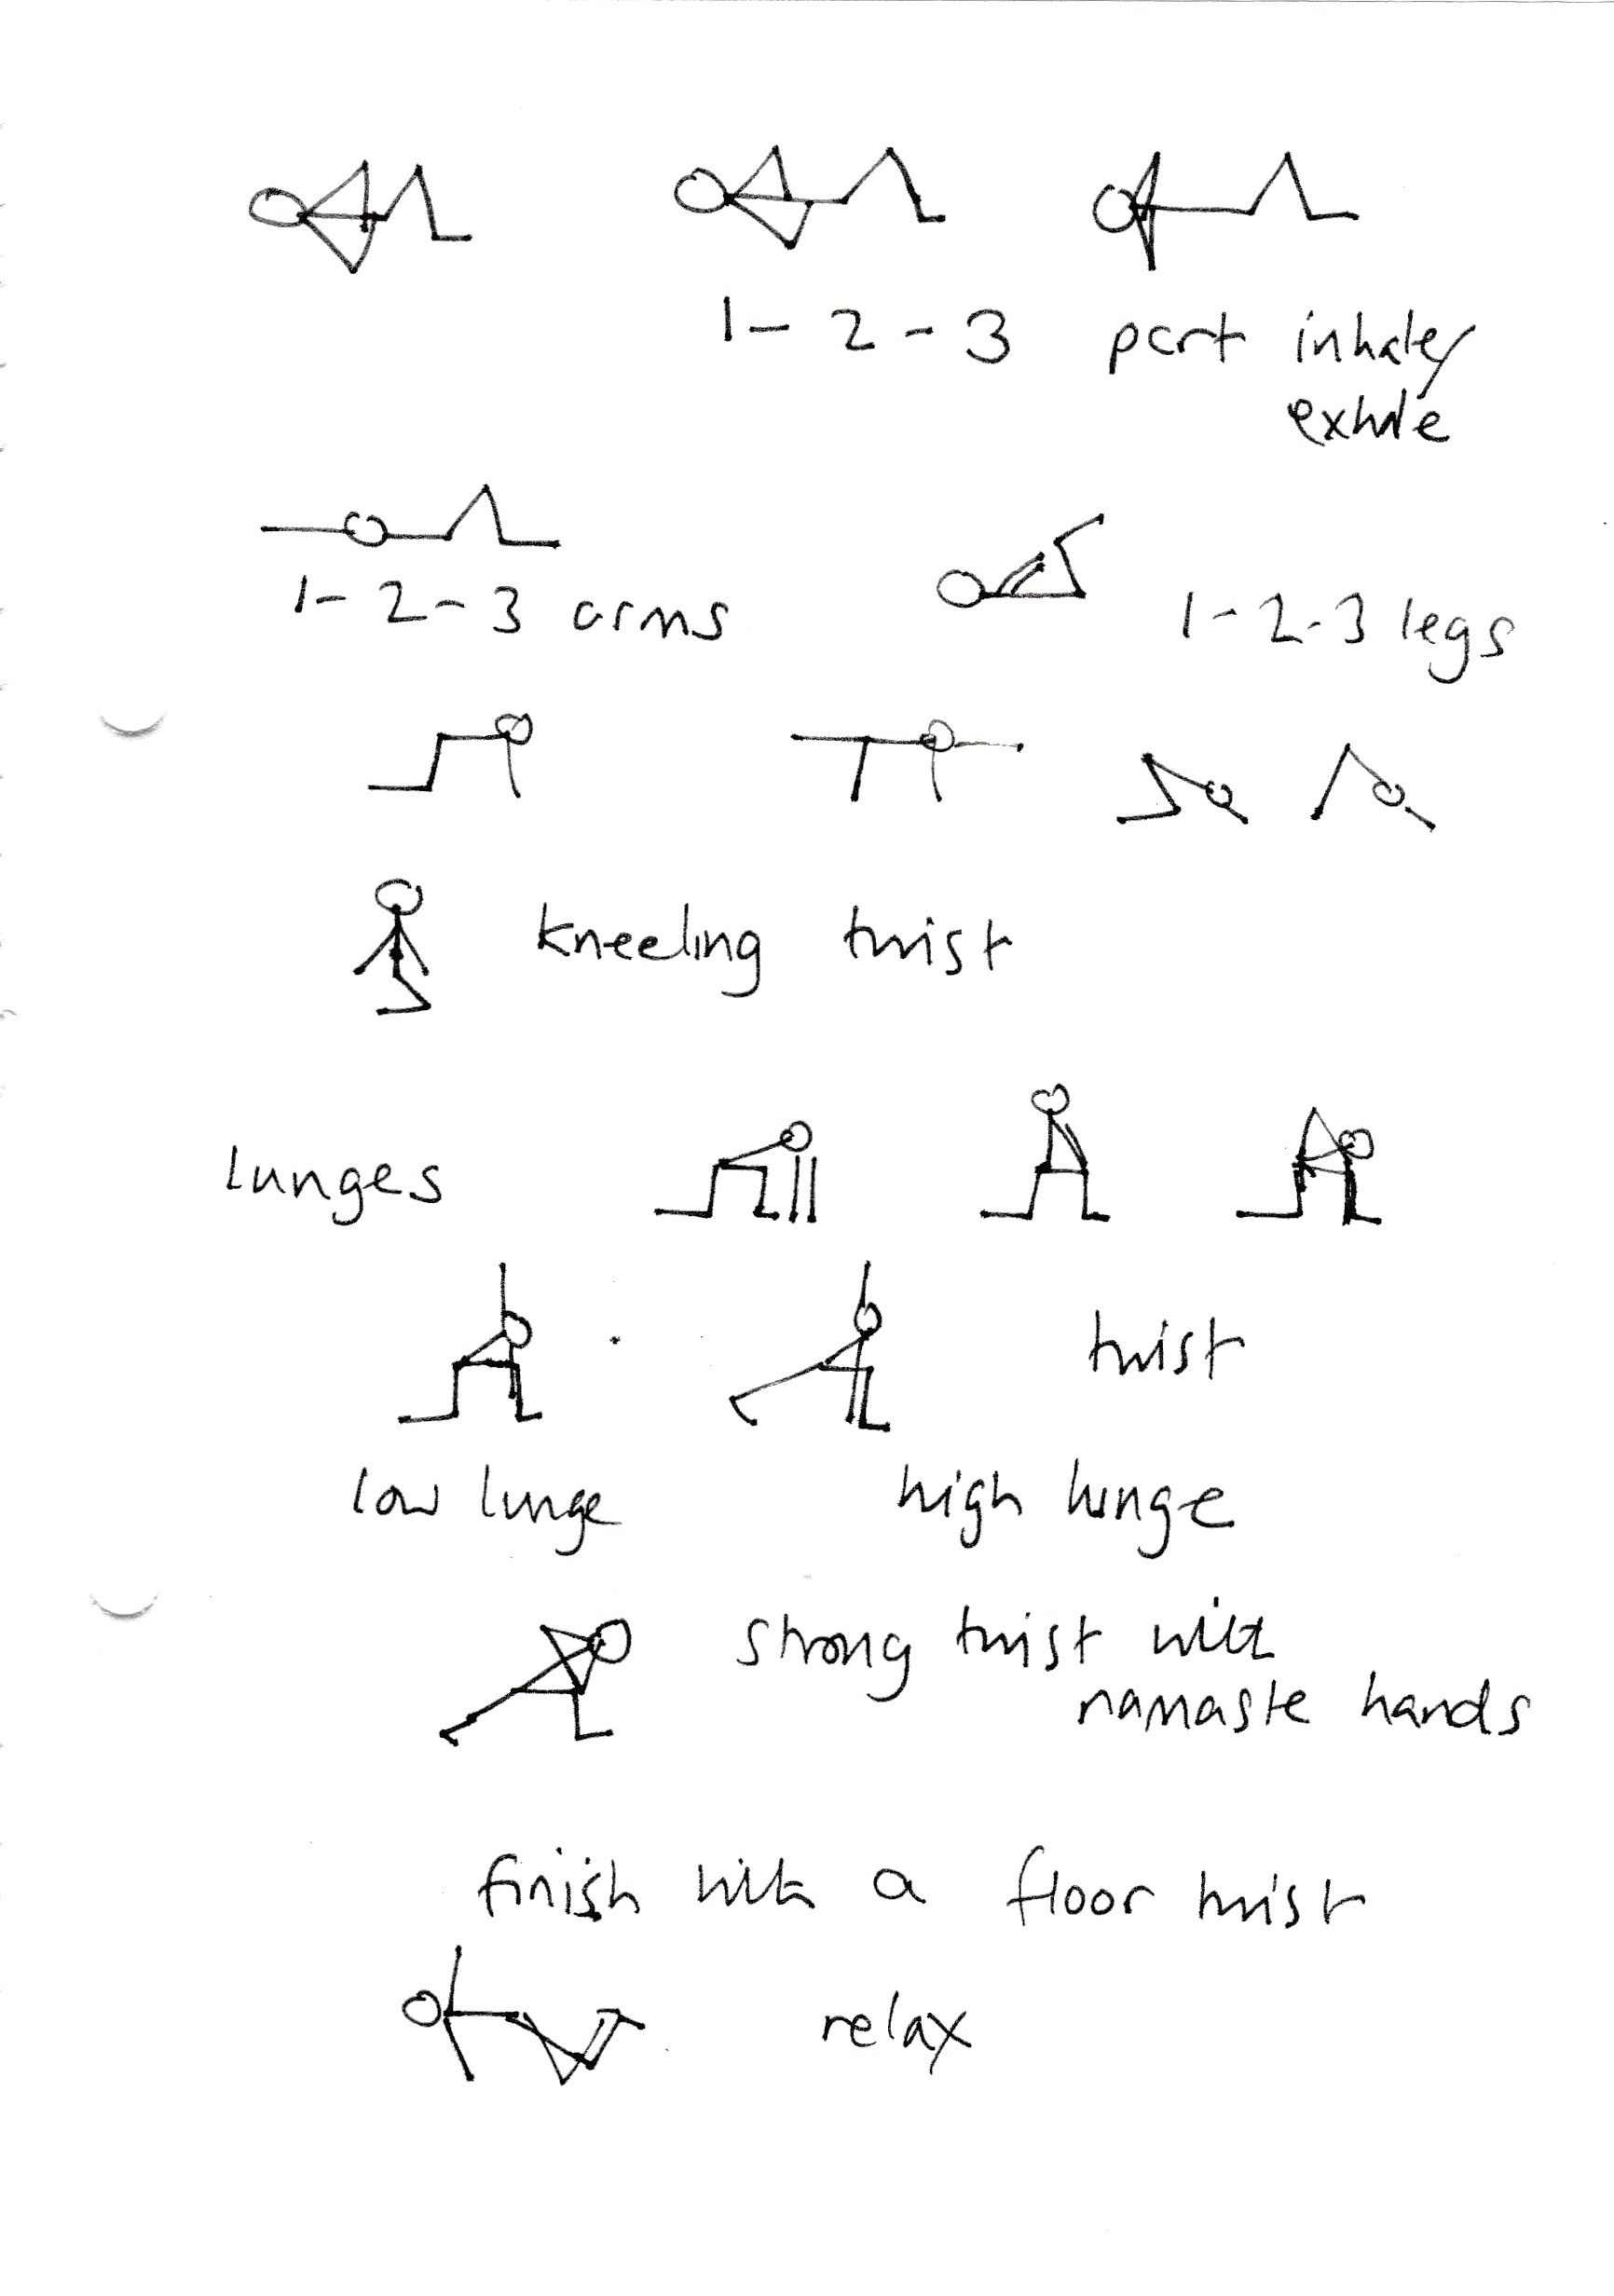 1 - 2 - 3 part inhale/
exhale
1 - 2 - 3 arms
1 - 2 - 3 legs
kneeling twist
lunges
twist
low lunge
high lunge
strong twist with
namaste hands
finish with a floor twist
relax